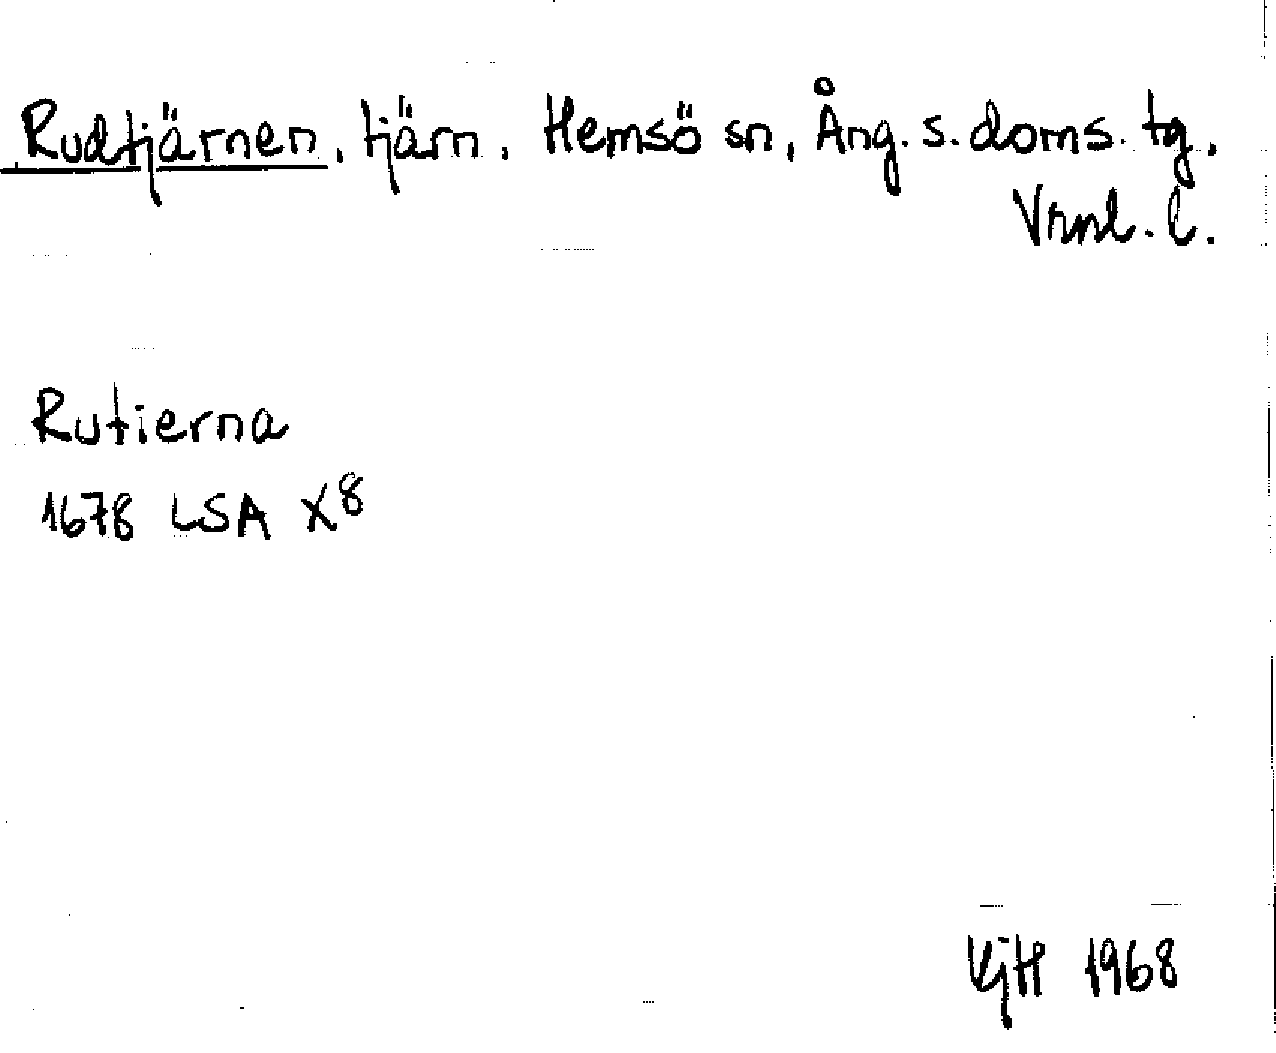 Rudtjärnen, tjärn, Hemsö sn, Ång. s. doms. tg.
Vrnl. l.
Rutierna
1678 LSA X8
KjH 1968